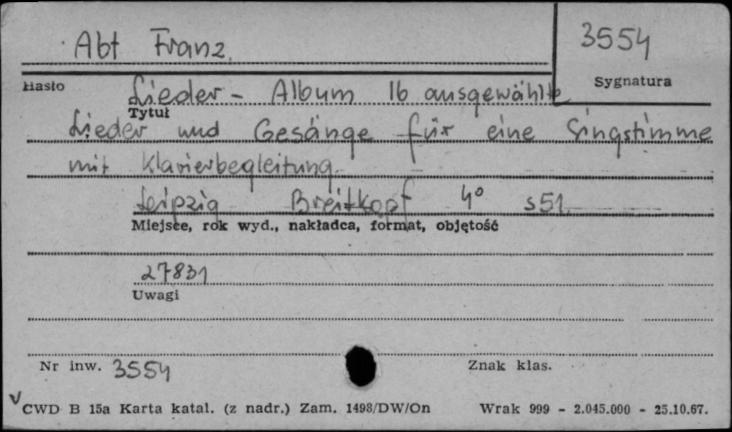 Abt Franz. 3554
Hasło Sygnatura
Lieder - Album 16 ausgewählte
Tytuł
Lieder und Gesänge für eine Singstimme
mit Klavierbegleitung
Leipzig Breitkopf 4° s 51.
Miejsce, rok wyd., nakładca, format, objętość
27831
Uwagi
Nr inw. 3554 Znak klas.
v CWD B 15a Karta katal. (z nadr.) Zam. 1498/DW/On Wrak 999 - 2.045.000 - 25.10.67.